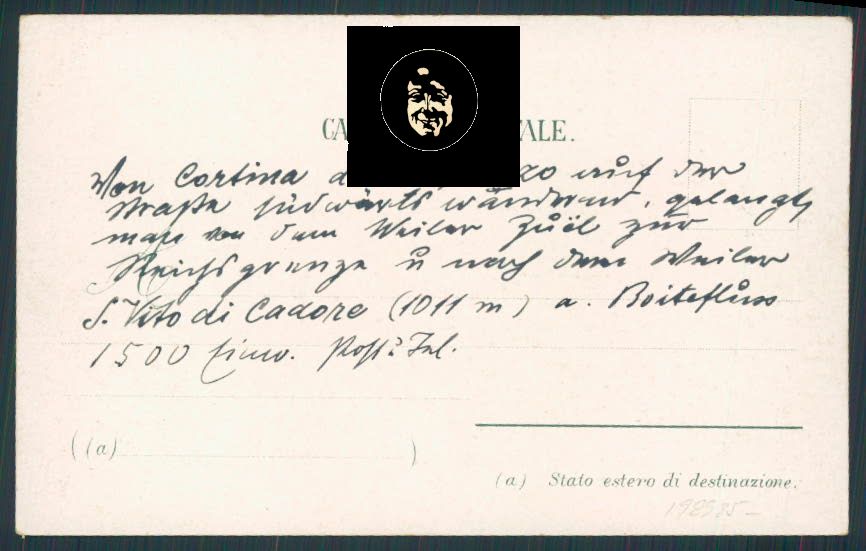 CA ALE.
Von Cortina d zo auf der
Straße südwärts wandernd, gelangt
man von dem Weiler Zuël zur
Reichsgrenze u nach dem Weiler
S. Vito di Cadore (1011 m) a. Boitefluss
1500 Einw. Post u. Tel.
((a) )
(a) Stato estero di destinazione.
198585-